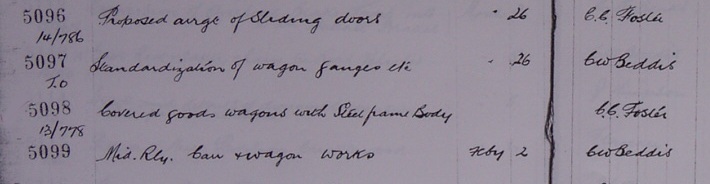 5096 Proposed arrgt of Sliding doors " 26 C.C. Foster
14/786
5097 Standardization of wagon gauges etc " 26 CW Beddis
T.O
5098 Covered goods wagons with Steel frame Body C.C. Foster
13/778
5099 Mid. Rly. Car & wagon works Feby 2 CW Beddis